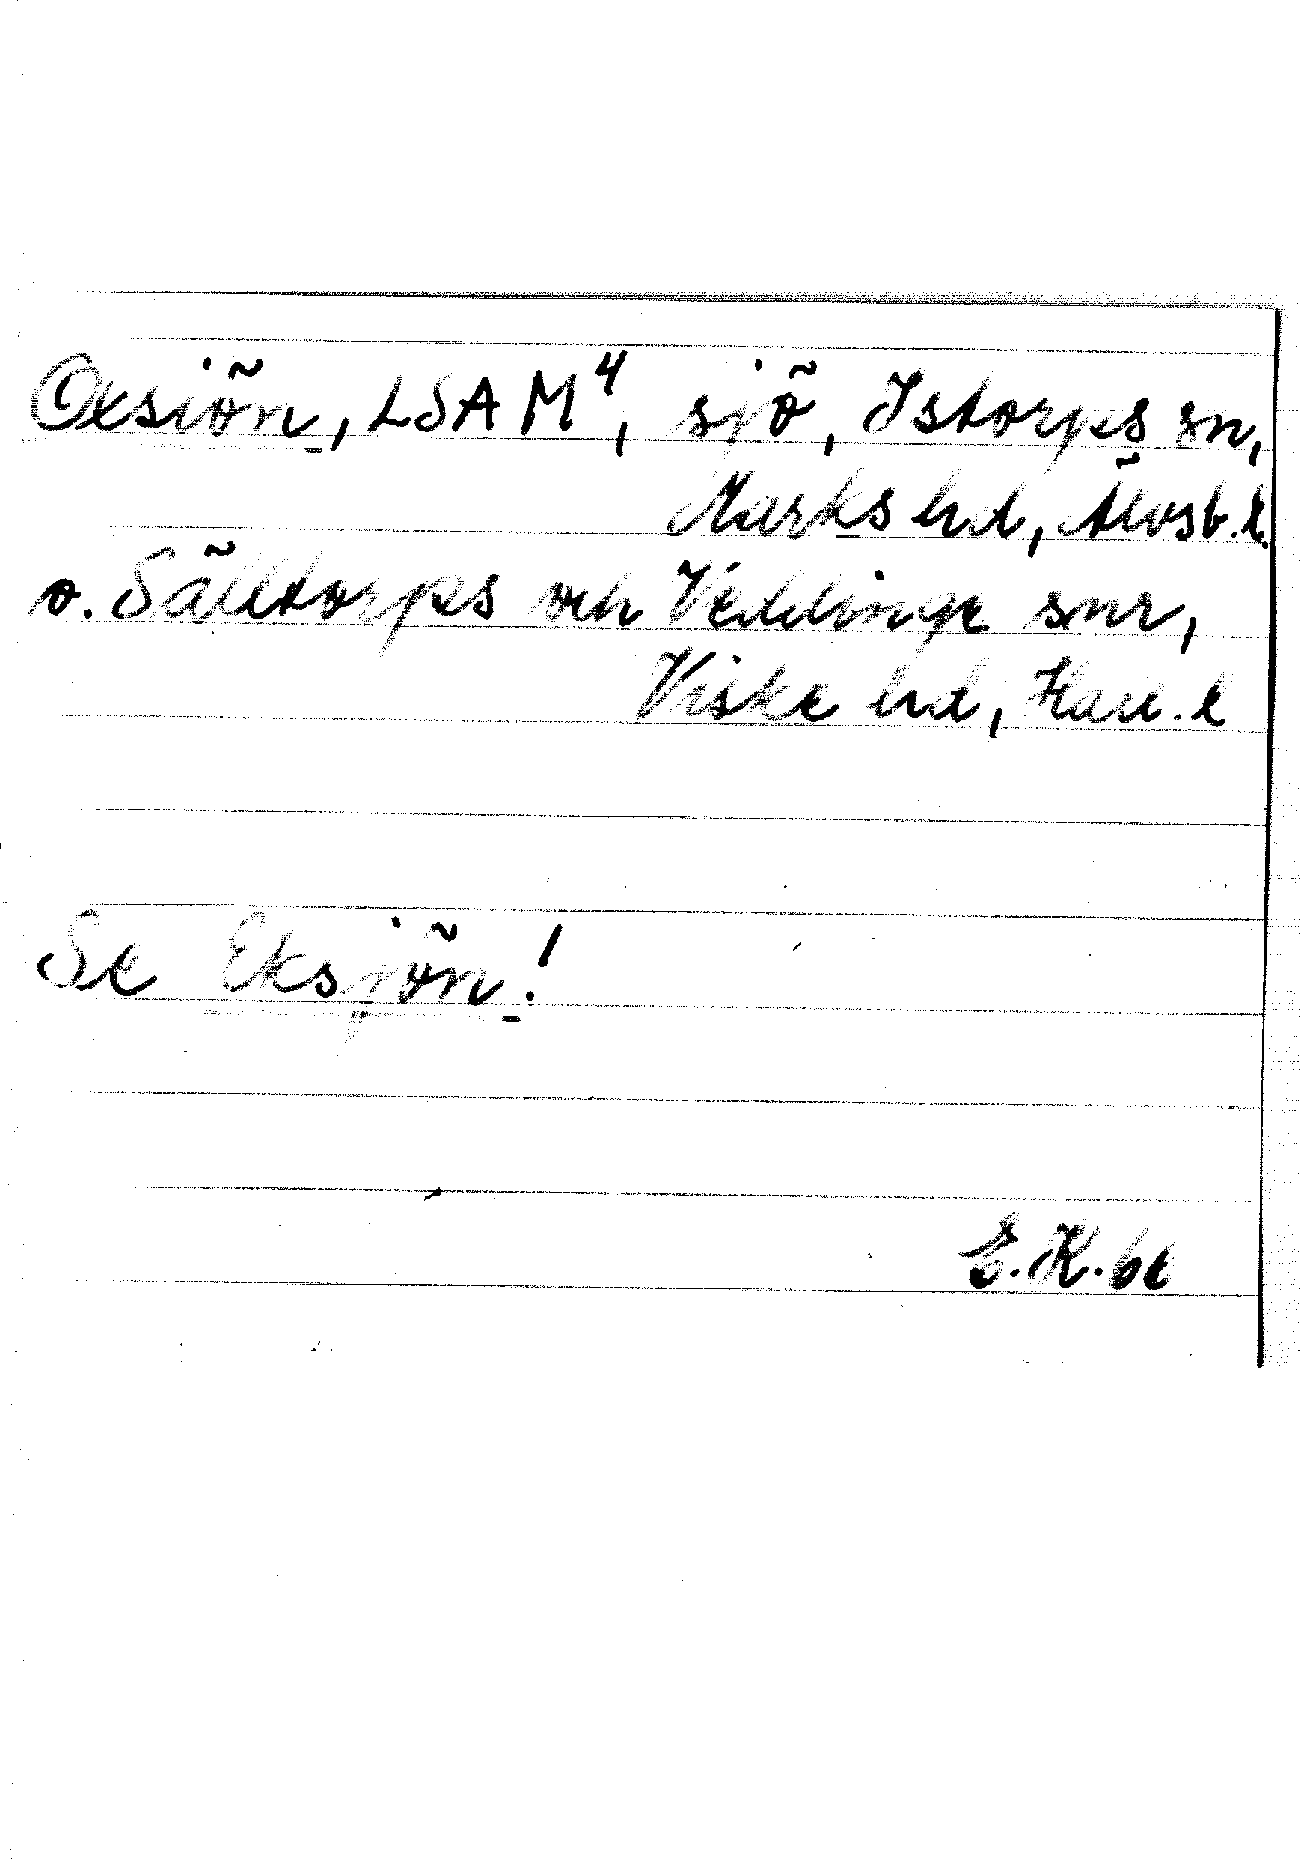 Oxsiön, LSA M⁴, sjö, Istorps sn,
Marks hd, Älvsb. l.
o. Sälltorps och Veddinge snr,
Viske hd, Hall. l
Se Eksjön!
E. K. bt